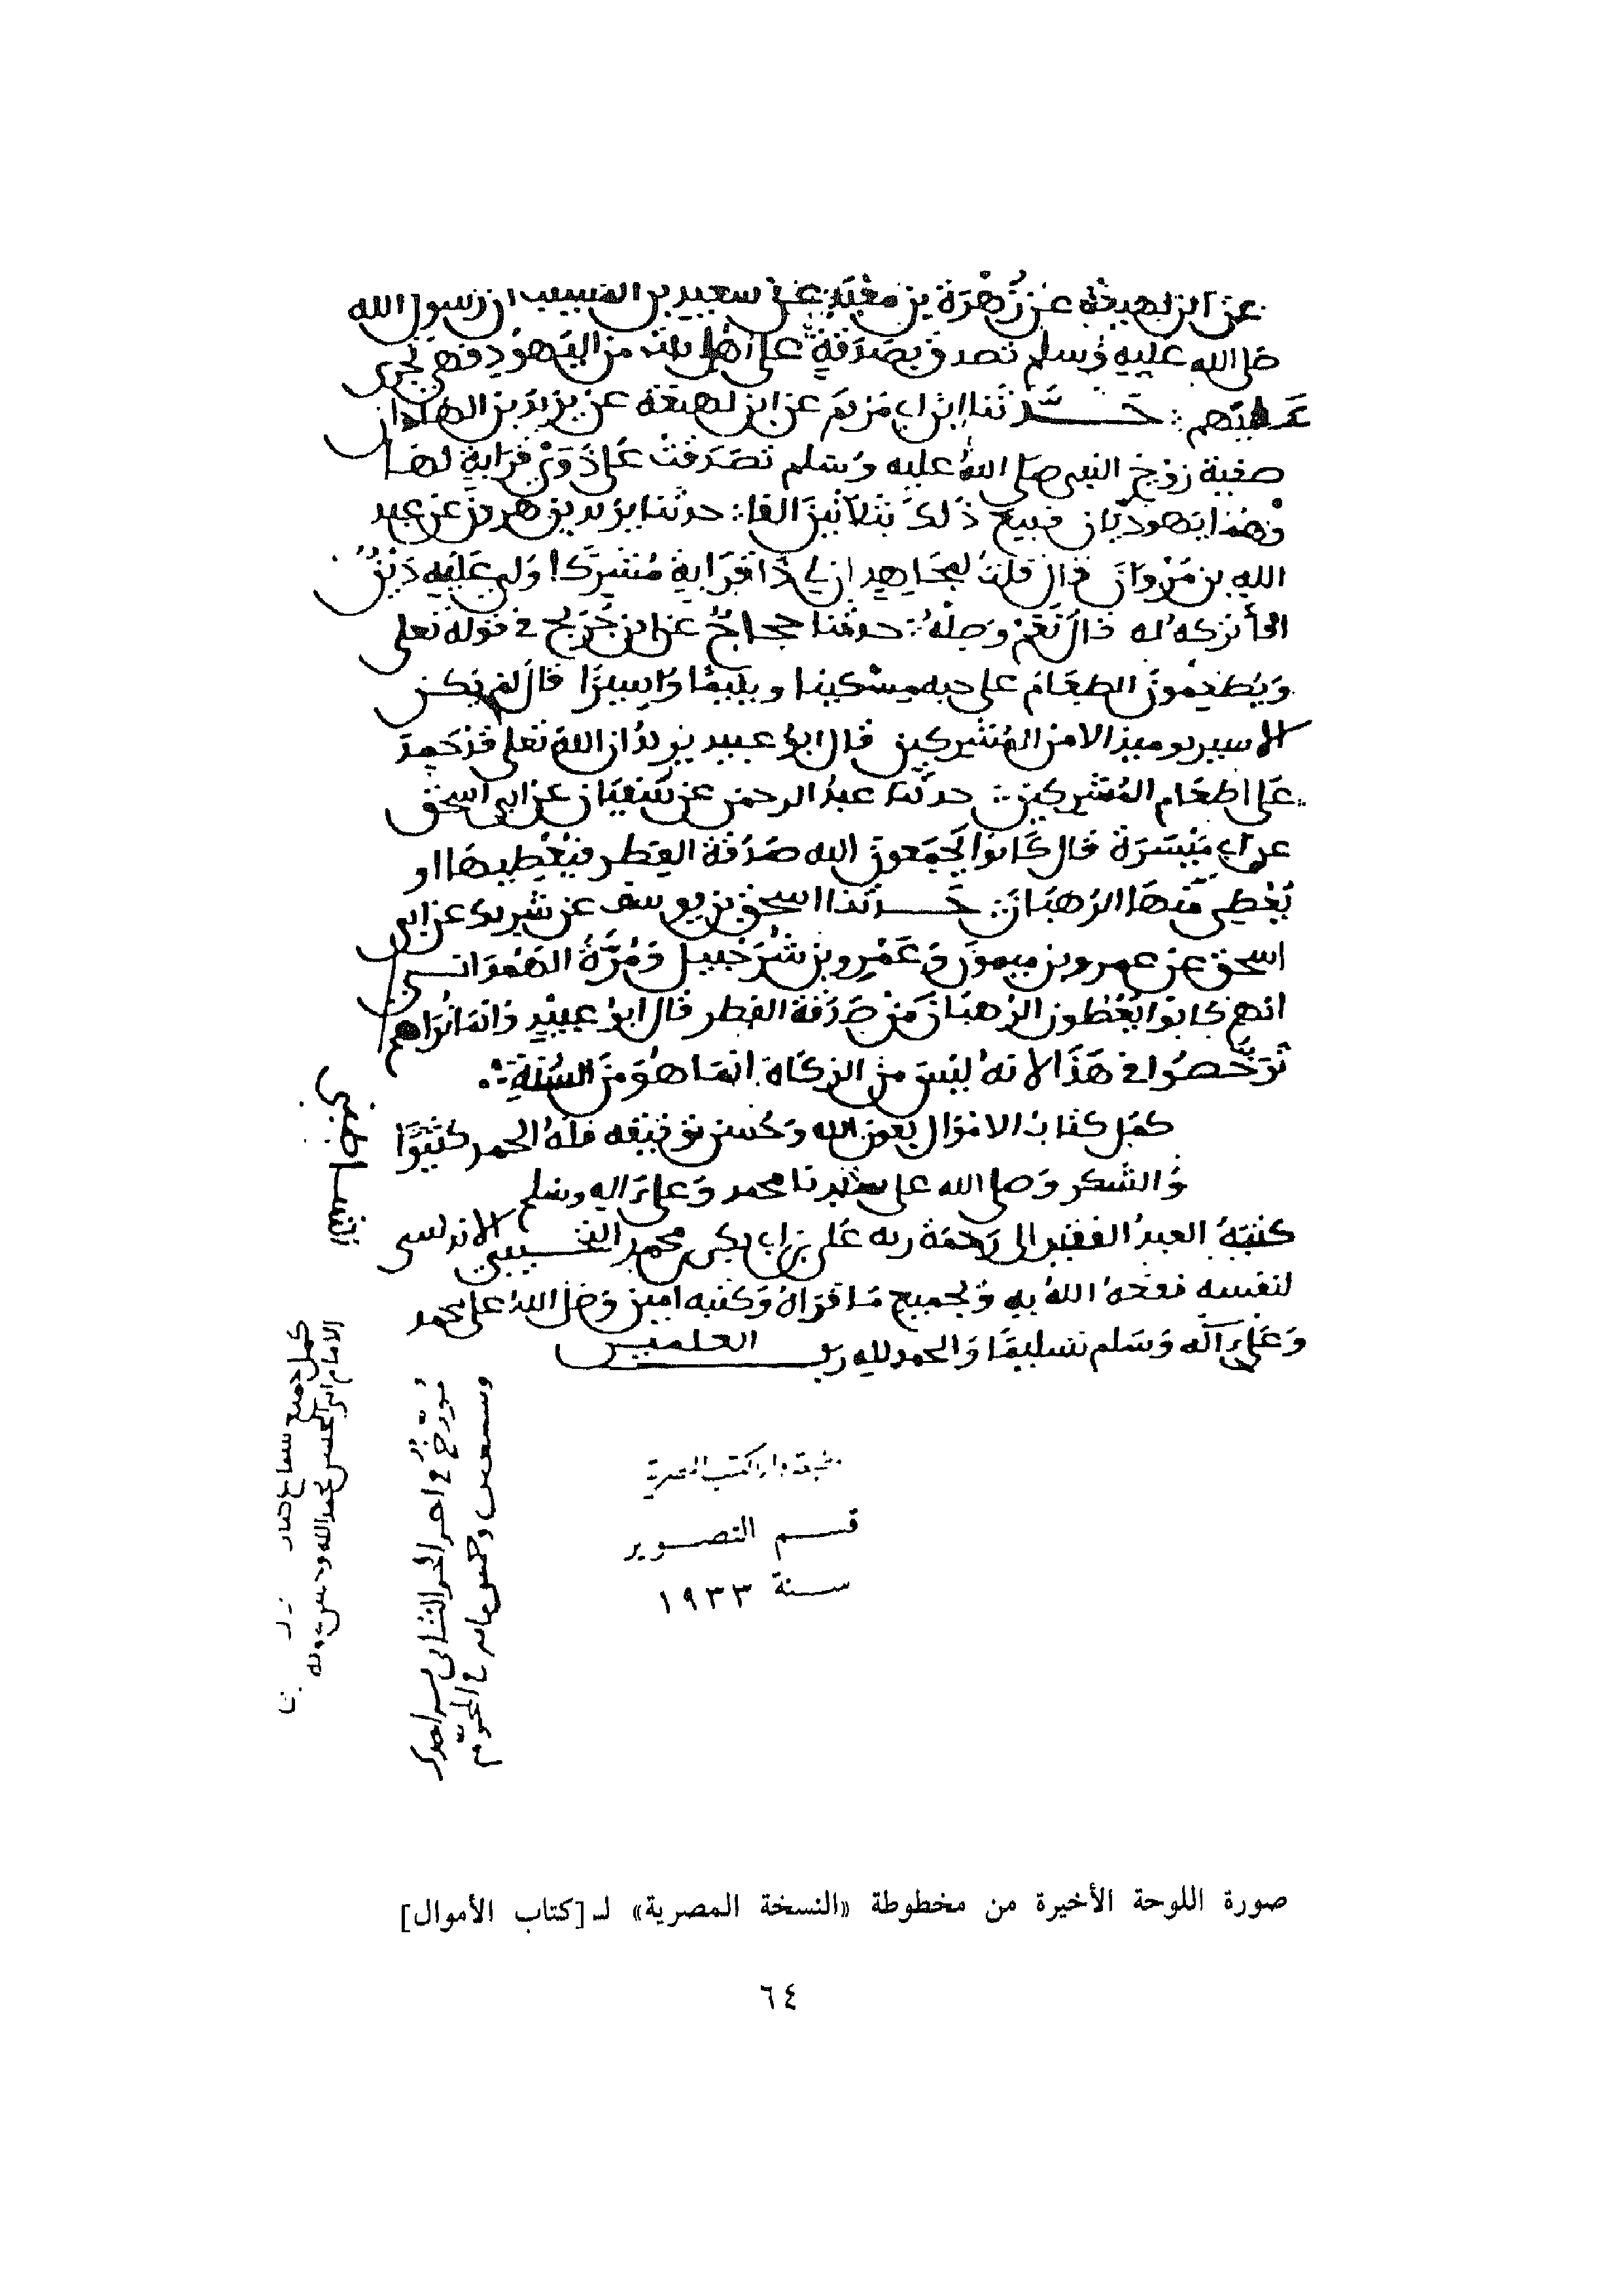 عن ابن لهيعة عن زهرة بن معبد عن سعيد بن المسيب ان رسول الله
صلى الله عليه وسلم تصدق بصدقة على اهل بيت من اليهود فهي تجرى
عليهم حدثنا ابن ابي مريم عن ابن لهيعة عن يزيد بن الهاد ان
صفية زوج النبى صلى الله عليه وسلم تصدقت على ذوي قرابة لها
وهما يهوديان فبيع ذلك بثلاثين الفا حدثنا يزيد بن هرون عن عبد
الله بن مروان قال قلت لمجاهد ان لي ذا قرابة مشركا ولي عليه دين
افأتركه له قال نعم وصله حدثنا حجاج عن ابن جريج في قوله تعلى
ويطعمون الطعام على حبه مسكينا ويتيما واسيرا قال لم يكن
الاسير يوميذ الا من المشركين قال ابو عبيد يريد ان الله تعلى قد حمد
على اطعام المشركين حدثنا عبد الرحمن عن سفيان عن ابي اسحق
عن ابي ميسرة قال كانوا يجمعون اليه صدقة الفطر فيعطيها او
يعطي منها الرهبان حدثنا اسحق بن يوسف عن شريك عن ابي
اسحق عن عمرو بن ميمون وعمرو بن شرحبيل ومرة الهمدانى
انهم كانوا يعطون الرهبان من صدقة الفطر قال ابو عبيد وانما نراهم
ترخصوا في هذا لانه ليس من الزكاة انما هو من السنة
كمل كتاب الاموال بعون الله وحسن توفيقه فله الحمد كثيرا
والشكر وصلى الله على سيدنا محمد وعلى اله وسلم
كتبه العبد الفقير الى رحمة ربه على بن ابي بكر بن محمد التجيبي الاندلسى
لنفسه نفعه الله به وبجميع ما قراه وكتبه امين وصلى الله على محمد
وعلى آله وسلم تسليما والحمد لله رب العلمين
كمل جميع سماع
الامام ابى الحسن بحمد الله وحسن
فى اخر الجزء الثانى
وسبعين وخمس مايه في المحرم
مطبعة دار الكتب المصرية
قسم التصوير
سنة ١٩٣٣
صورة اللوحة الأخيرة من مخطوطة «النسخة المصرية» لـ [كتاب الأموال]
٦٤